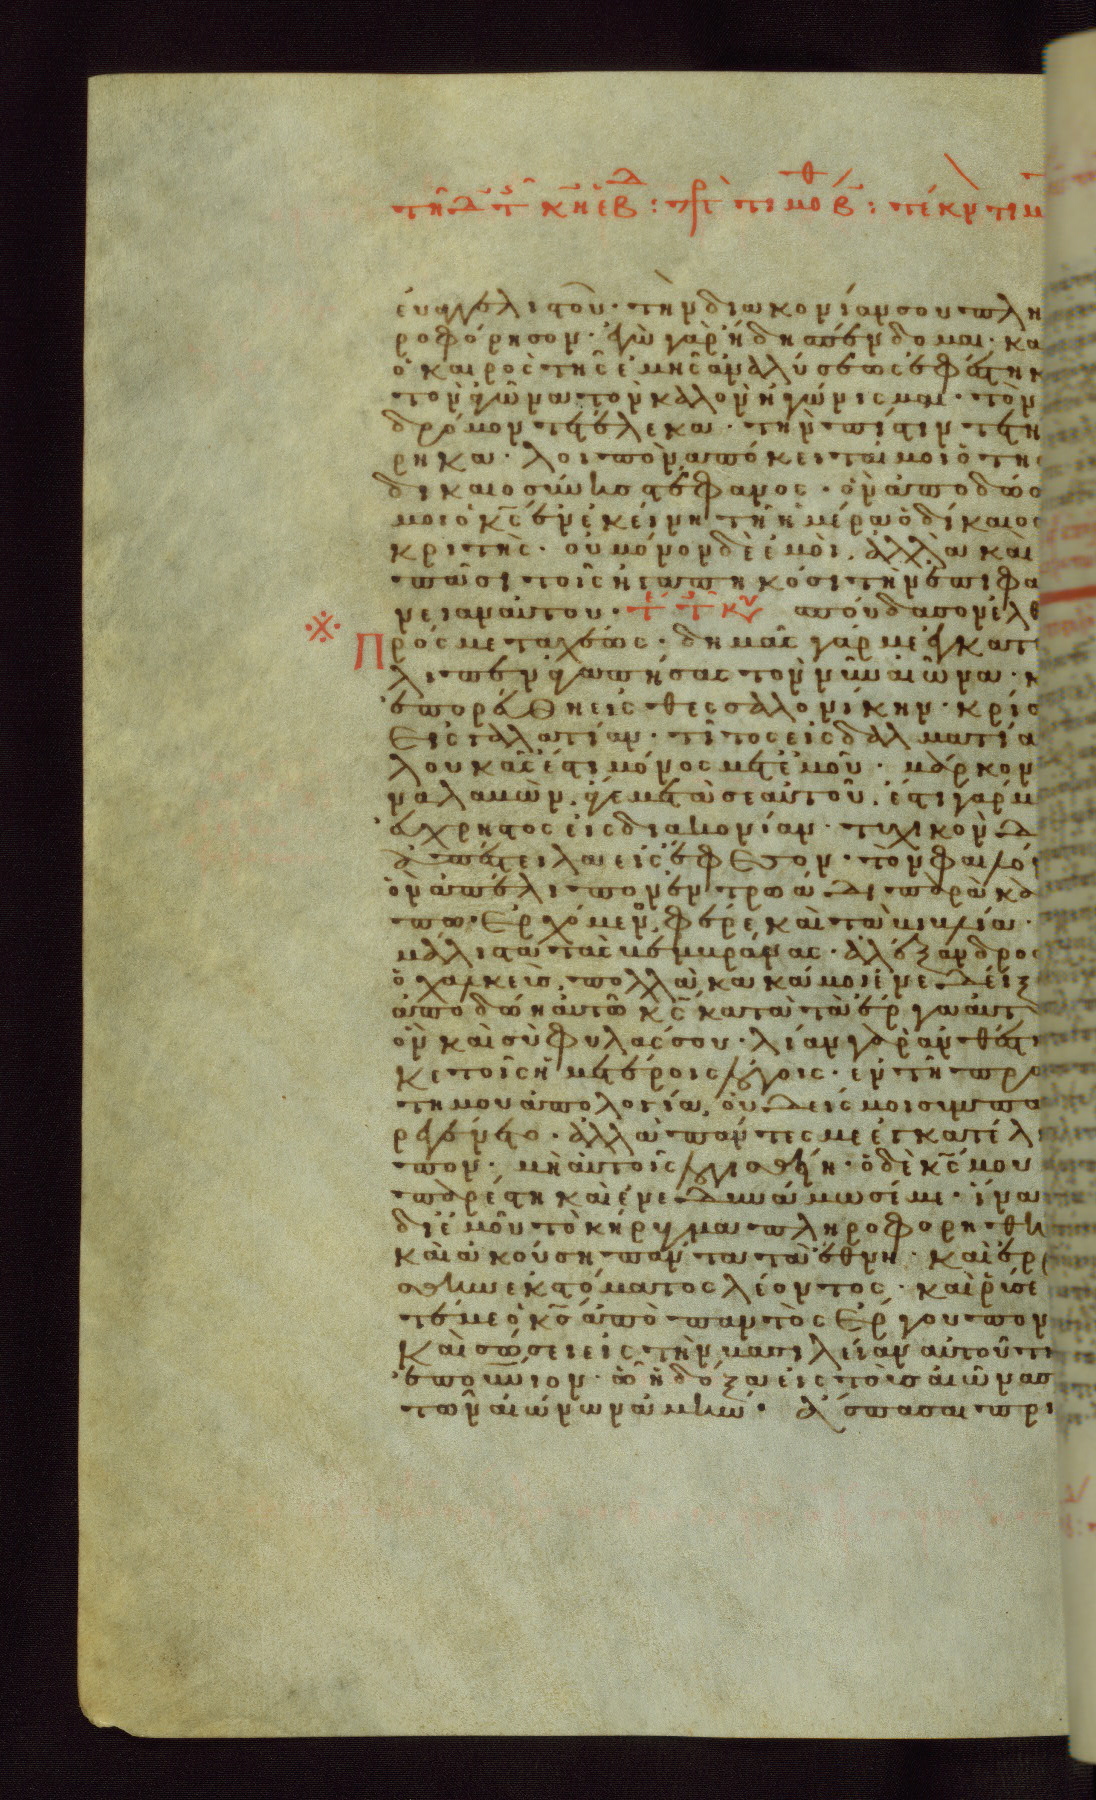 τῆ δ τῆς κη ἑβδ : πρ τιμοθ β : τέκν τιμ
εὐαγγελιστοῦ · τὴν διακονίαν σου πλη
ροφόρησον · ἐγὼ γὰρ ἤδη σπένδομαι · κα
ὁ καιρὸς τῆς ἐμῆς ἀναλύσεως ἐφέστηκ
τὸν ἀγῶνα τὸν καλὸν ἠγώνισμαι · τὸν
δρόμον τετέλεκα · τὴν πίστιν τετή
ρηκα · λοιπὸν ἀπόκειταί μοι ὁ τῆς
δικαιοσύνης στέφανος · ὃν ἀποδώσ
μοι ὁ κς ἐν ἐκείνη τῆ ἡμέρα ὁ δίκαιος
κριτὴς · οὐ μόνον δὲ ἐμοὶ, ἀλλὰ καὶ
πᾶσι τοῖς ἠγαπηκόσι τὴν ἐπιφά
νειαν αὐτοῦ · σπούδασον ἐλθ
Πρός με ταχέως · δημᾶς γάρ με ἐγκατέ
λιπεν ἀγαπήσας τὸν νῦν αἰῶνα · κ
ἐπορεύθη εἰς θεσσαλονίκην · κρίσ
εἰς γαλατίαν · τίτος εἰς δαλματία
λουκᾶς ἐστὶ μόνος μετ' ἐμοῦ · μάρκον
ἀναλαβὼν, ἄγε μετὰ σεαυτοῦ, ἔστι γάρ μ
εὔχρηστος εἰς διακονίαν · τυχικὸν δ
ἀπέστειλα εἰς ἔφεσον · τὸν φαιλό
ὃν ἀπέλιπον ἐν τρωάδι παρὰ κά
πω · ἐρχόμενος, φέρε καὶ τὰ βιβλία ·
μάλιστα τὰς μεμβράνας · ἀλέξανδρος
ὁ χαλκεὺς, πολλά κακά μοι ἐνεδείξ
ἀποδώη αὐτῶ κς κατὰ τὰ ἔργα αὐτ
ὃν καὶ σὺ φυλάσσου · λίαν γὰρ ἀνθέστη
κε τοῖς ἡμετέροις λόγοις · ἐν τῆ πρώ
τη μου ἀπολογία, οὐδείς μοι συμπα
ρεγένετο · ἀλλὰ πάντες με ἐγκατέλι
πον · μὴ αὐτοῖς λογισθείη · ὁ δὲ κς μου
παρέστη καὶ ἐνεδυνάμωσέ με · ἵνα
δι' ἐμοῦ τὸ κήρυγμα πληροφορηθῆ
καὶ ἀκούση πάντα τὰ ἔθνη · καὶ ἐρρ
σθην ἐκ στόματος λέοντος · καὶ ῥύσε
ταί με ὁ κς ἀπὸ παντὸς ἔργου πον
καὶ σώσει εἰς τὴν βασιλείαν αὐτοῦ τὴ
ἐπουνιον · ὧ ἡ δόξα εἰς τοὺς αἰῶνας
τῶν αἰώνων ἀμήν · ἄσπασαι πρί